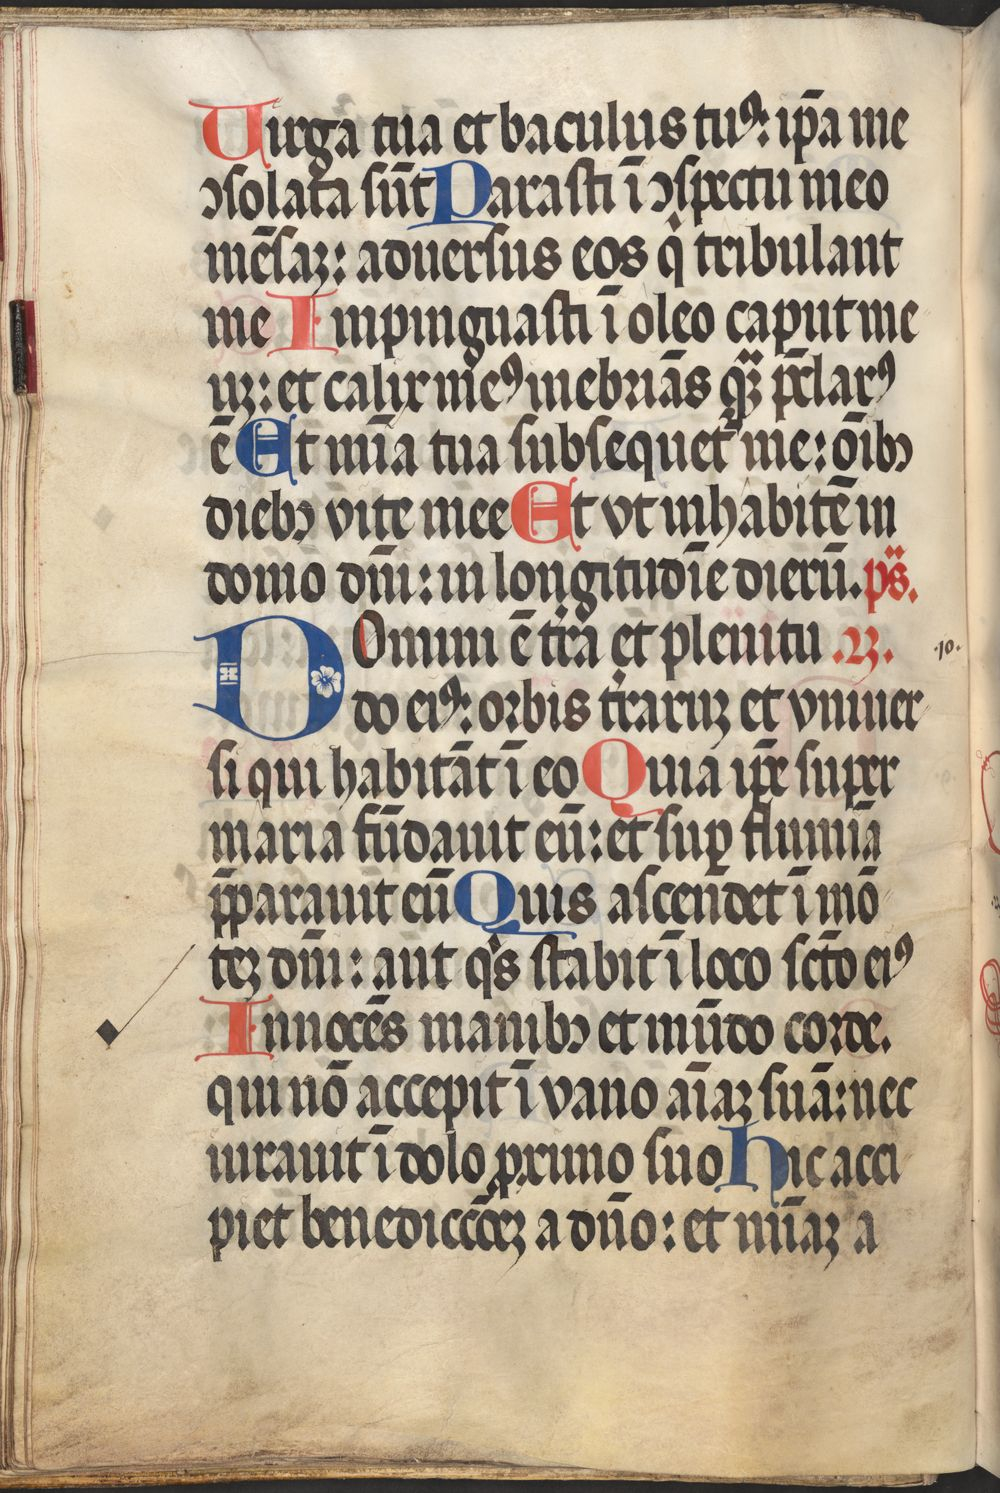 Uirga tua et baculus tuꝰ: ip̄a me
ↄsolata sūt Parasti ī ↄspectu meo
mēsaꝫ: aduersus eos qͥ tribulant
me Impinguasti ī oleo caput me
uꝫ: et calix meꝰ inebriās qͣꝫ p̄clarꝰ
ē Et mīa tua subsequet᷑ me: oībꝫ
diebꝫ vite mee Et vt inhabitē in
domo dn̄i: in longitudīe dierū. ps̄.
DOmini ē tr̄a et plenitu .23. .10.
do eiꝰ: orbis tr̄aruꝫ et vniuer
si qui habitāt ī eo Quia ip̄e super
maria fūdauit eū: et suꝑ flumīa
p̄parauit eū Quis ascendet ī mō
teꝫ dn̄i: aut qͥs stabit ī loco sct̄o eiꝰ
Innocēs manibꝫ et mūdo corde.
qui nō accepit ī vano aīaꝫ suā: nec
iurauit ī dolo ꝓximo suo hic acci
piet benediccōeꝫ a dn̄o: et mīaꝫ a